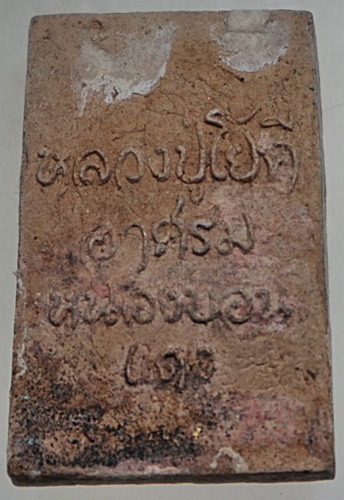 หลวงปู่โยคี
อาศรม
หนองบอน